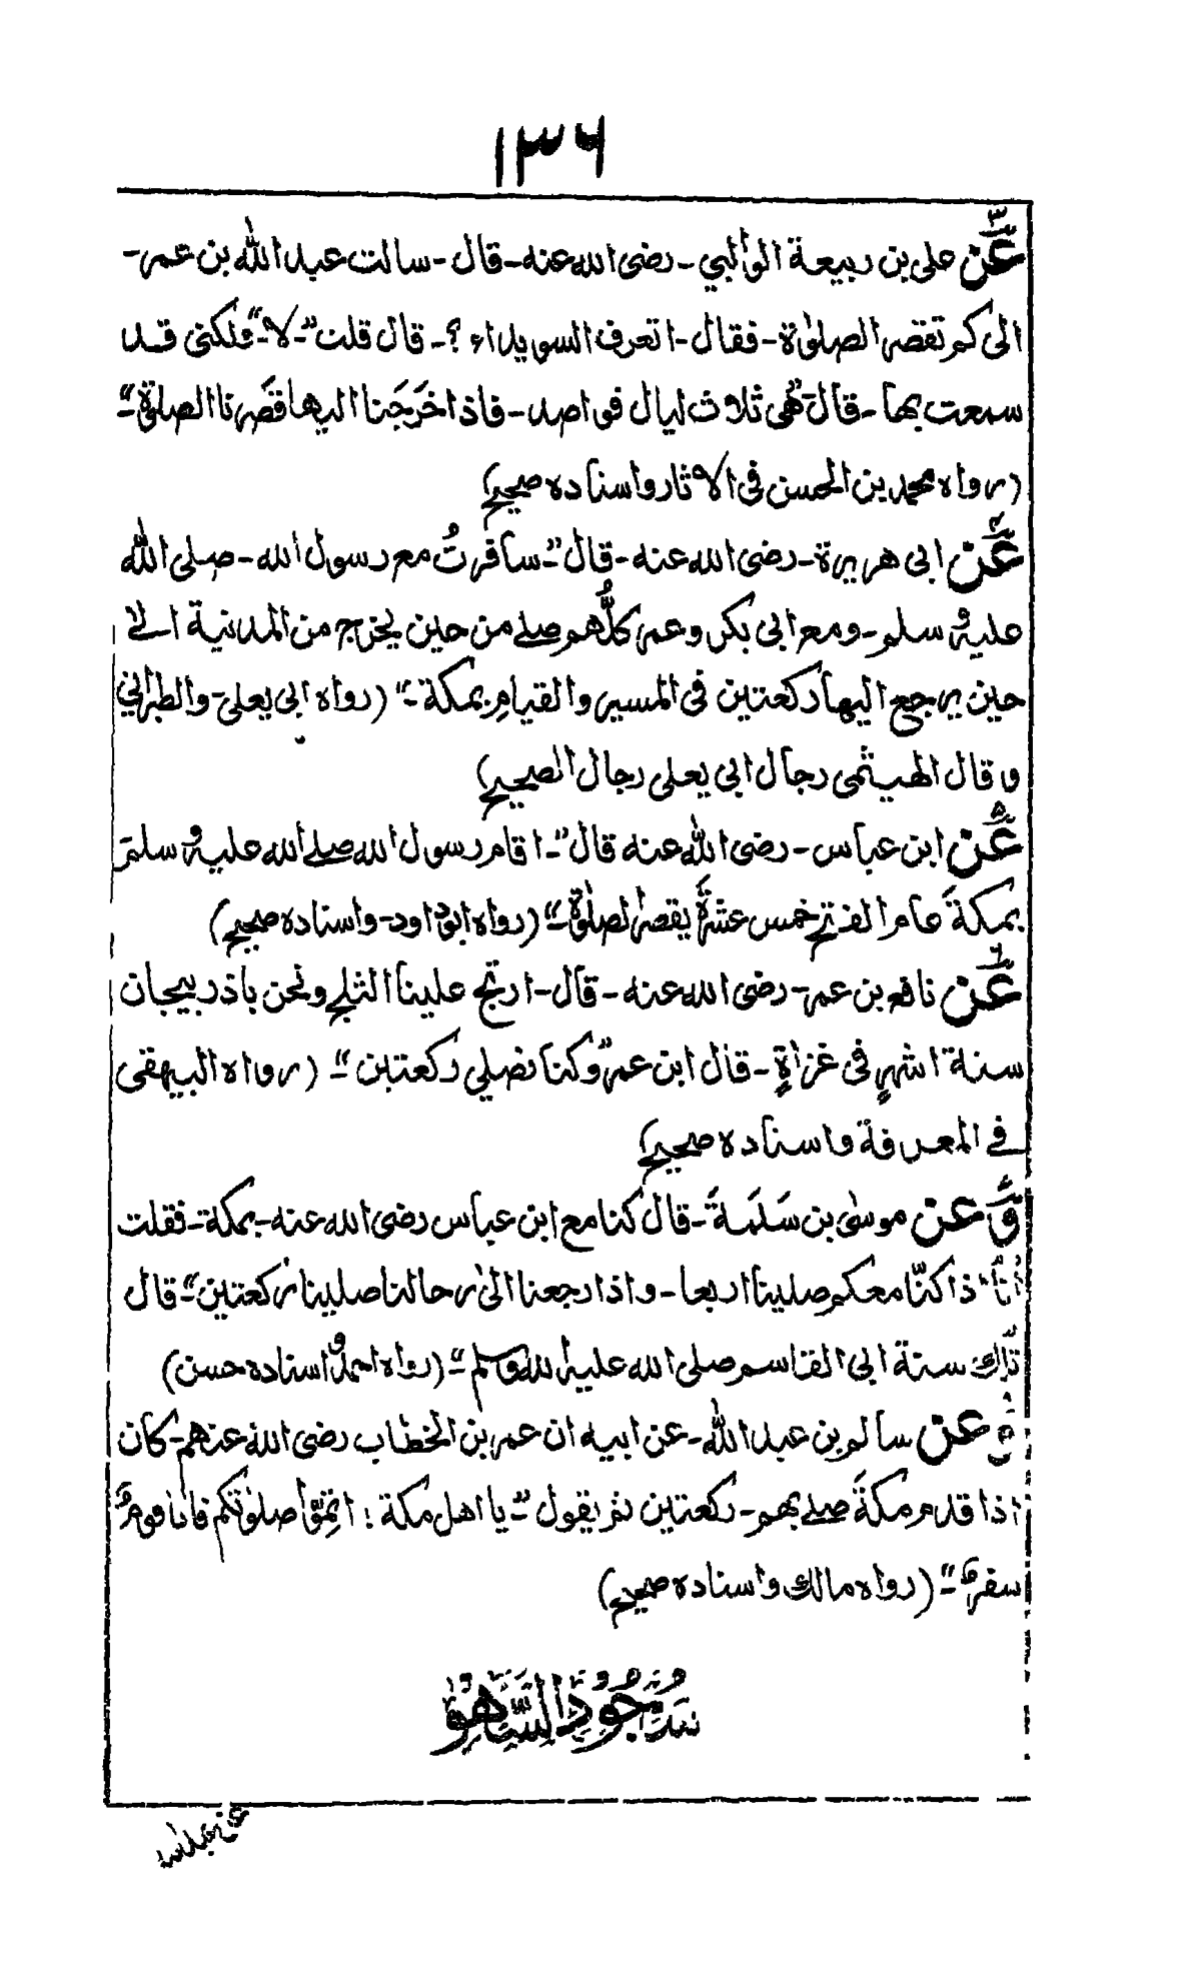 ١٣٦
عَنْ٣ علی بن ربیعة الوالبي - رضی الله عنه - قال - سالت عبد الله بن عمر -
الی کم تقصر الصلوٰة - فقال - اتعرف السویداء ؟ - قال قلت "- لا -" ولکنی قد
سمعت بها - قال "هی ثلاث لیال قواصد - فاذا خَرَجَنا الیها قَصَرنا الصلوٰة" -
(رواه محمد بن الحسن فی الاٰثار واسناده صحیح)
عَنْ٤ ابی هریرة - رضی الله عنه - قال "- سافرتُ مع رسول الله - صلی الله
علیه وسلم - ومع ابی بکر وعمر کلُّهم صلے من حین یخرج من المدنیة الے
حین یرجع الیها رکعتین فی المسیر والقیامِ بمکة -" (رواه ابی یعلیٰ - والطبرانی
وقال الهیثمی رجال ابی یعلی رجال الصحیح)
عَنْ٥ ابن عباس - رضی الله عنه قال "- اقام رسول الله صلے الله علیه وسلم
بمکةَ عام الفتح خمس عشرةَ یقصر الصلوٰةَ -" (رواه ابوداود - واسناده صحیح)
عَنْ٦ نافع بن عمر - رضی الله عنه - قال - ارتج علینا الثلج ونحن باذربیجان
ستة اشهرٍ فی غزاةٍ - قال ابن عمر "وکنا نصلی رکعتین -" (رواه البیهقی
فے المعرفة واسناده صحیح)
وَعن موسٰی بن سَلَمةَ - قال کنا مع ابن عباس رضی الله عنه - بمکة - فقلت
انا اذا کنّا معکم صلینا اربعا - واذا رجعنا الیٰ رحالنا صلینا رکعتین" - قال
تلك سنة ابی القاسم صلی الله علیه الله وسلم -" (رواه احمد واسناده حسن)
وعن سالم بن عبد الله - عن ابیه ان عمر بن الخطاب رضی الله عنهم - کان
اذا قدم مکةَ صلے بهم - رکعتین ثم یقول "- یا اهل مکة ! اتمّوا صلوٰتکم فانا قومٌ
سفرٌ -" (رواه مالك واسناده صحیح)
سُجُودُ السَّهْوِ
عن عبد الله